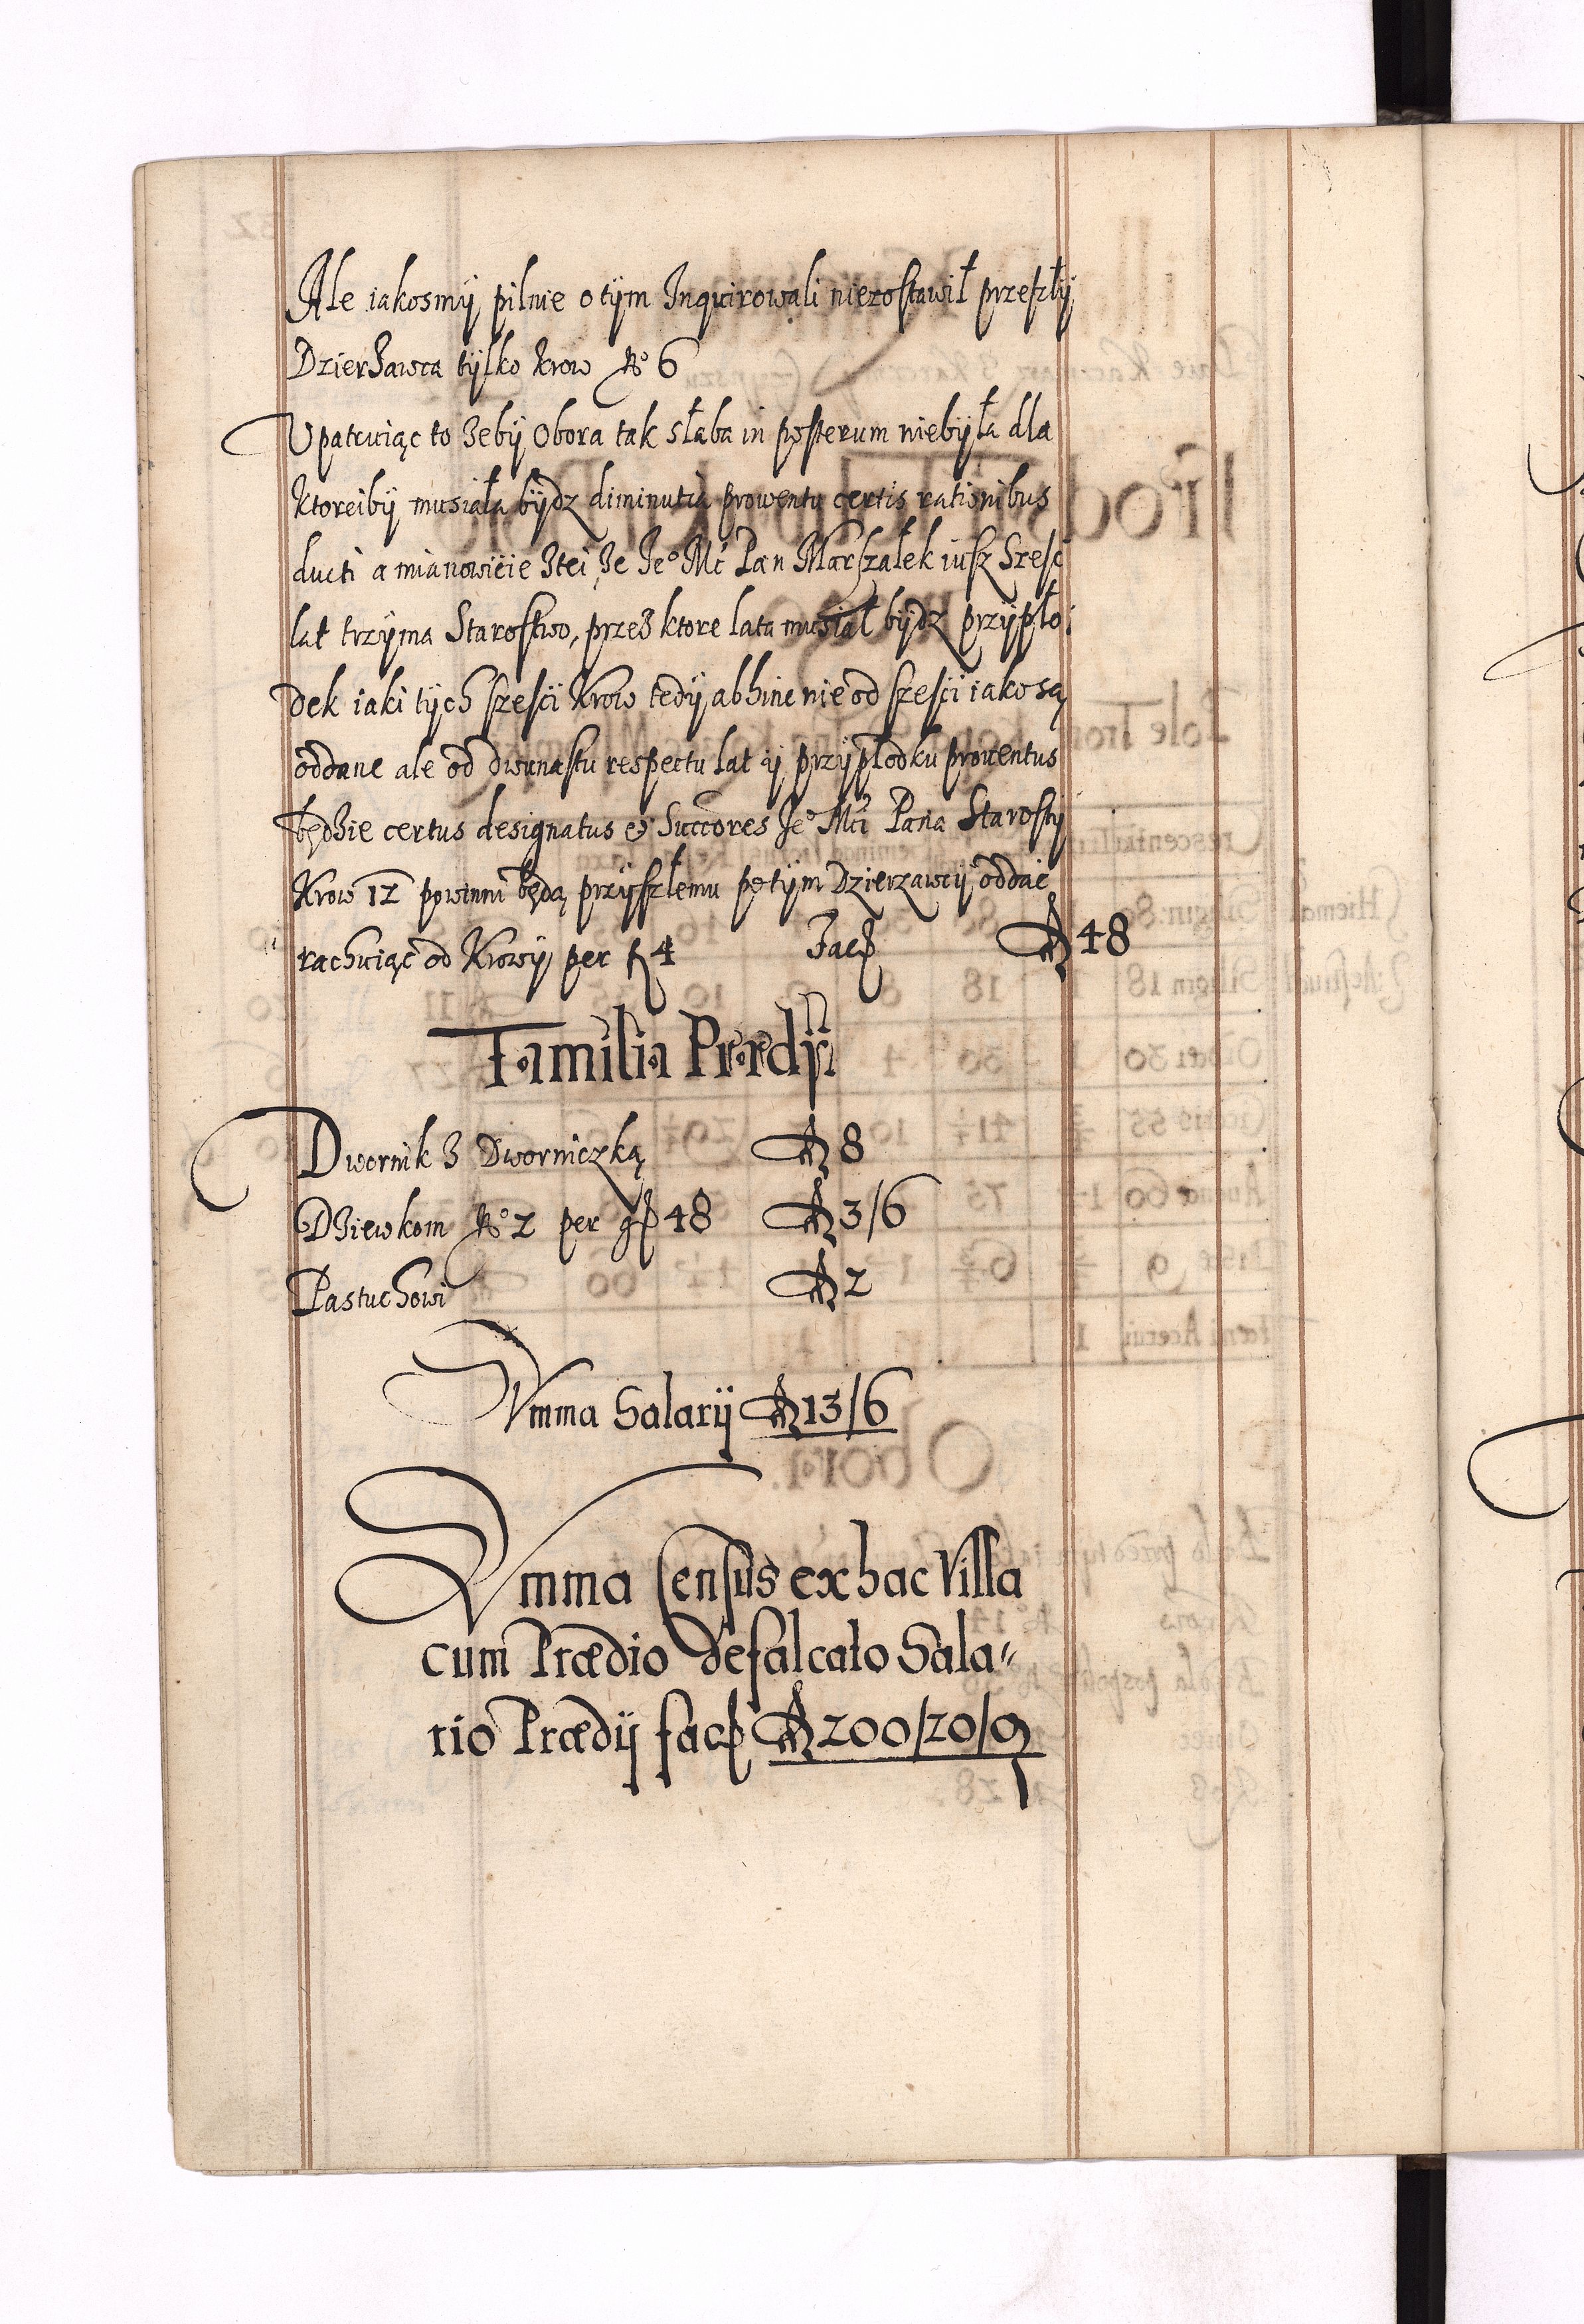 Ale iakosmÿ pilnie o tÿm Inquirowali niezostawił przeszłÿ
Dzierżawca tÿlko krow No 6
Upatruiąc to żebÿ Obora tak słaba in posterum niebÿła dla
ktoreibÿ musiała bÿdz diminutia prowentu certis rationibus
ducti a mianowicie ztei że Jeo Mć Pan Marszałek iusz szesc
lat trzÿma Starostwo, przez ktore lata musiał bÿdz przÿpło:
dek iaki tÿch szesci krow tedÿ abhinc nie od szesci iako są
oddane ale od dwunastu respectu lat ÿ przÿpłodku prouentus
będzie certus designatus et Succores Jeo Mci Pana Starostÿ
Krow 12 powinni będą przÿszłemu po tÿm Dzierzawcÿ oddać
rachuiąc od Krowÿ per f 4 Facit f 48
Familia Prædÿ
Dwornik z Dworniczką f 8
Dziewkom No 2 per gs 48 f 3/6
Pastuchowi f 2
Summa Salarÿ f 13/6
Summa Census ex hac Villa
cum Prædio defalcato Sala=
rio Prædÿ facit f 200/20/9